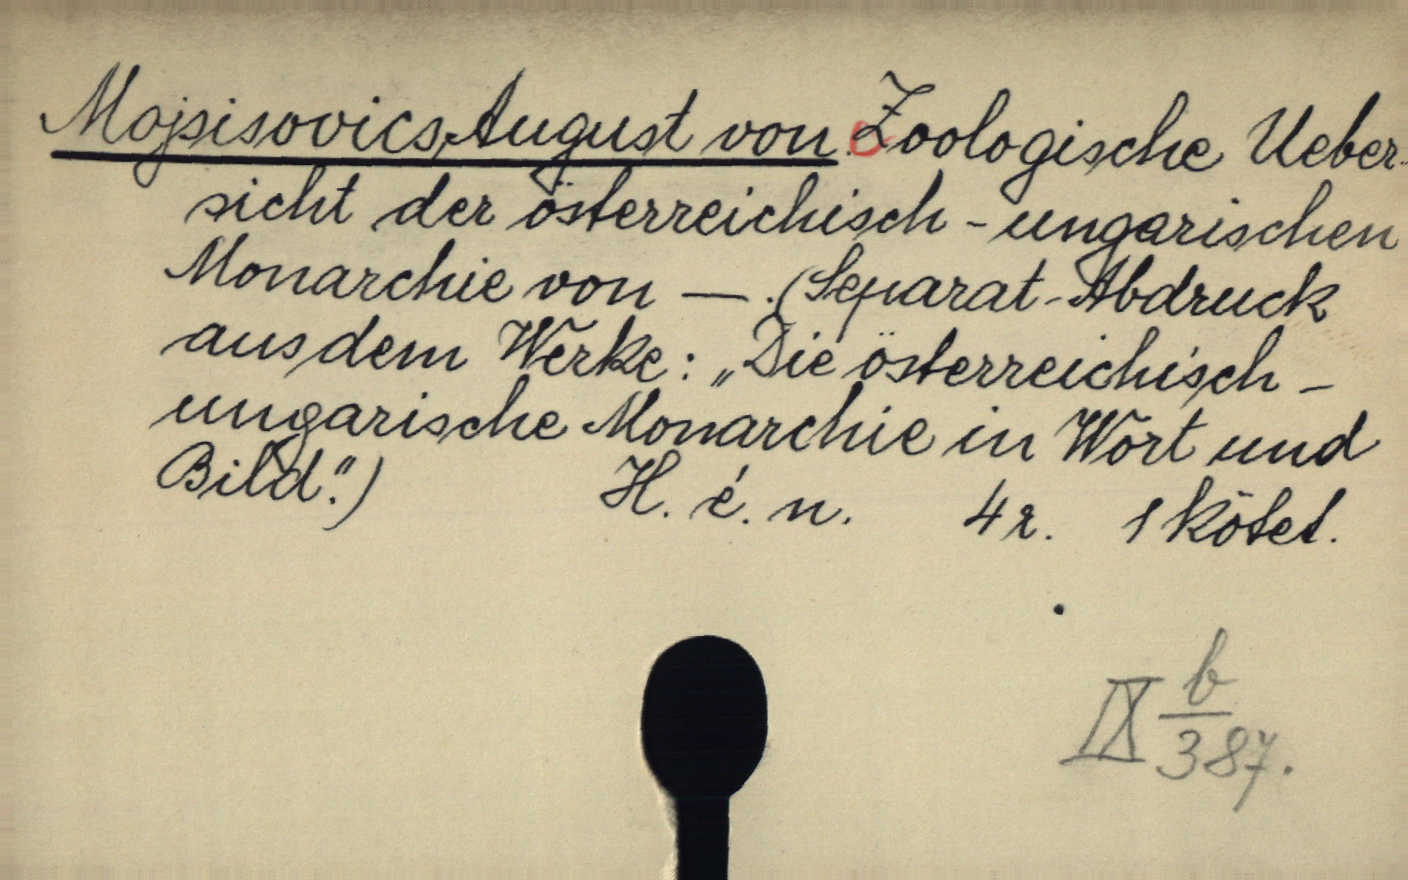 Mojsisovics, August von Zoologische Ueber-
sicht der österreichisch-ungarischen
Monarchie von —. (Separat-Abdruck
aus dem Werke: „Die österreichisch-
ungarische Monarchie in Wort und
Bild“.) H. é. n. 4r. 1 kötet.
IX b/387.